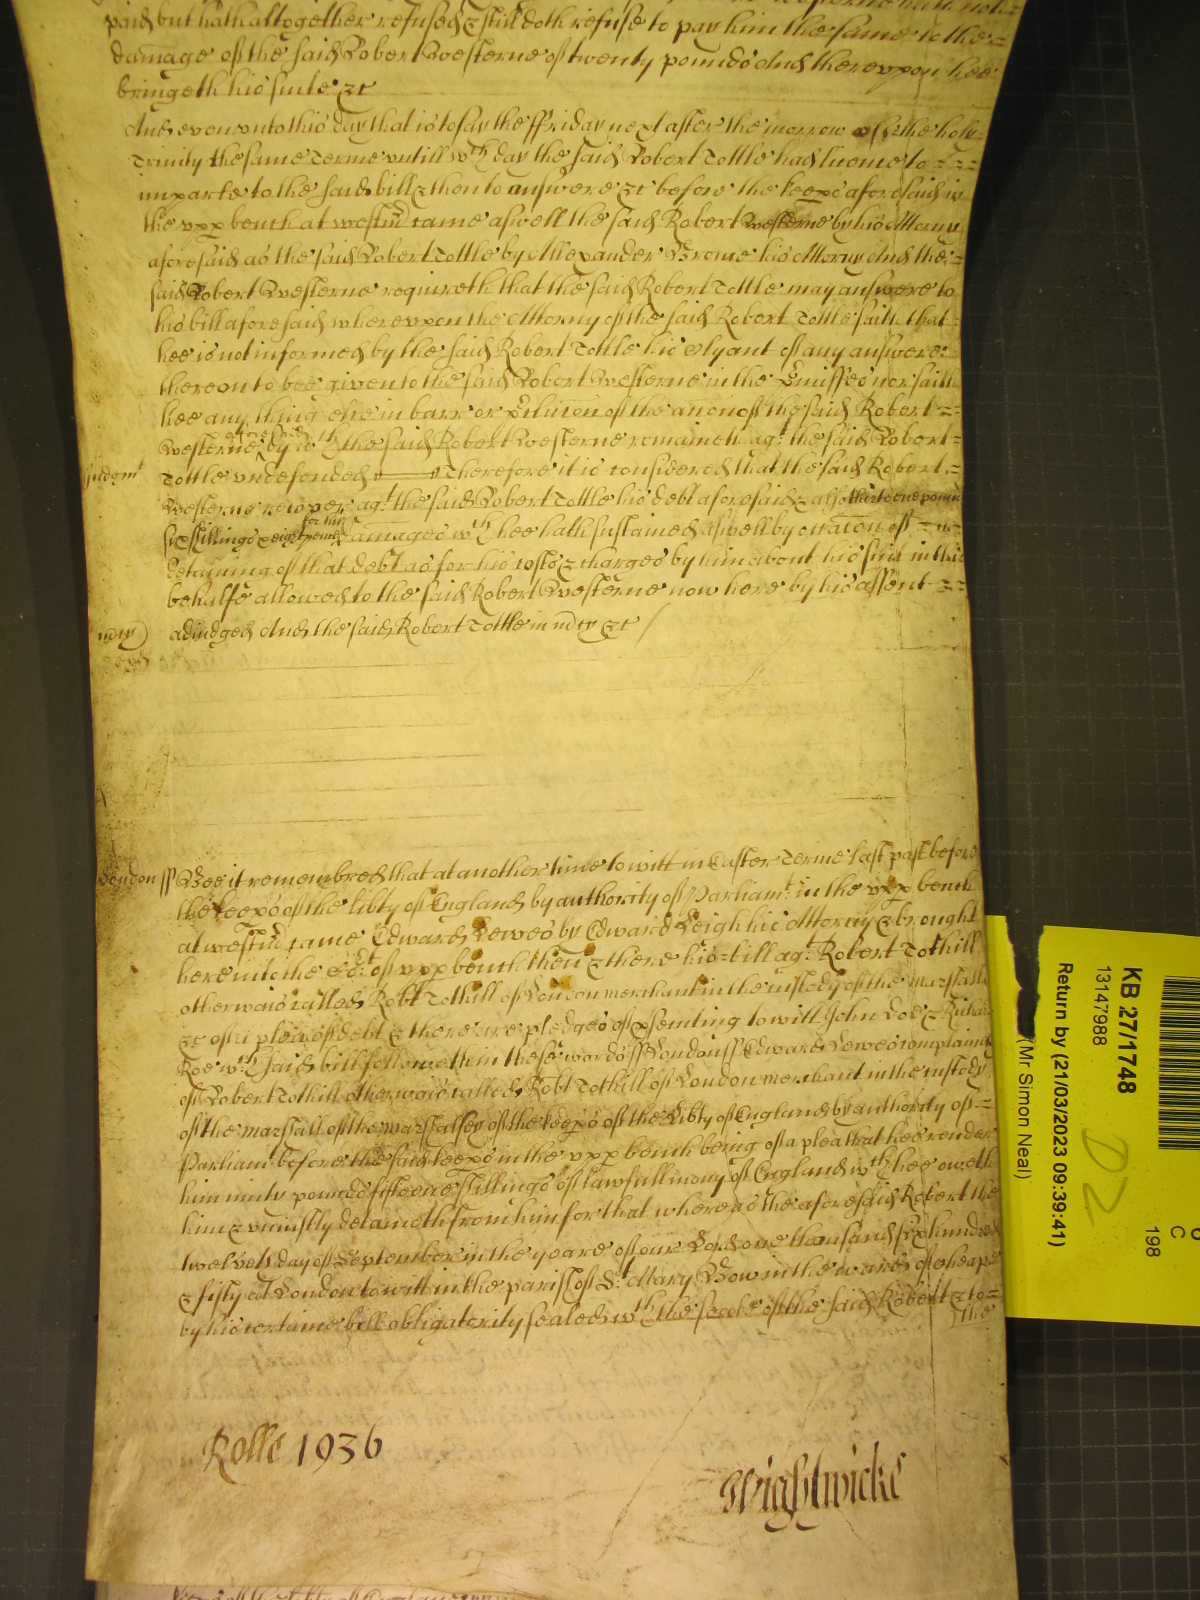 paid but hath altogether refused & still doth refuse to pay him the same to the =
damage of the said Robert Westerne of twenty pounds And thereupon hee
bringeth his suite &c
And now unto this day that is to say the ffriday next after the morrow of the holy =
Trinity the same Terme untill wch day the said Robert Tottle had licence to = = =
imparle to the said bill & then to answere &c before the keeps aforesaid in
the upp bench at westmr came aswell the said Robert Westerne by his Attorny
aforesaid as the said Robert Tottle by Allexander Brome his Attorny And the =
said Robert Westerne requireth that the said Robert Tottle may answere to
his bill aforesaid whereupon the Attorny of the said Robert Tottle saith that =
hee is not informed by the said Robert Tottle his Clyant of any answere
thereon to bee given to the said Robert Westerne in the Pmisses nor saith
hee any thing else in barr or Pclucon of the accon of the said Robert = =
Westerne by wch the said Robert Westerne remaineth agt the said Robert =
Judgmt Tottle undefended Therefore it is considered that the said Robert =
Westerne recover agt the said Robert Tottle his debt aforesaid & also thirteene pounds
six shillings & eight pence for his damages wch hee hath sustained aswell by occacon of =
detayning of that debt as for his costs & charges by him about his suit in this
behalfe allowed to the said Robert Westerne now here by his assent = =
mcy adiudged And the said Robert Tottle in mcy &c
London ss Bee it remembred that at another time to witt in Easter Terme last past before
the keeps of the libty of England by authority of Parliamt in the upp bench
at westmr came Edward Lewes by Edward Leigh his Attorny & brought
here into the Ct of upp bench then & there his = bill agt Robert Tothill
otherwais called Robt Tothill of London merchant in the custody of the marshall
&c of a plea of debt & there are pledges of psecuting to witt John Doe & Richard
Roe wch said bill followeth in these words ss London ss Edward Lewes complaines
of Robert Tothill otherwais called Robt Tothill of London merchant in the custody
of the marshall of the marshalsey of the keeps of the Libty of England by authority of =
Parliamt before the said keeps in the upp bench being of a plea that hee render
him ninty pounds fifteene shillings of lawfull mony of England wch hee oweth
him & uniustly detaineth from him for that whereas the aforesaid Robert the
twelveth day of September in the yeare of our Lord one thousand six hundred
& fifty at London to witt in the parish of St Mary Bow in the ward of cheape
by his certaine bill obligatory sealed wth the seale of the said Robert & to =
the
Rolle 1936
Wightwicke
KB 27/1748
13147988
Return by (21/03/2023 09:39:41)
(Mr Simon Neal)
D2
C
198